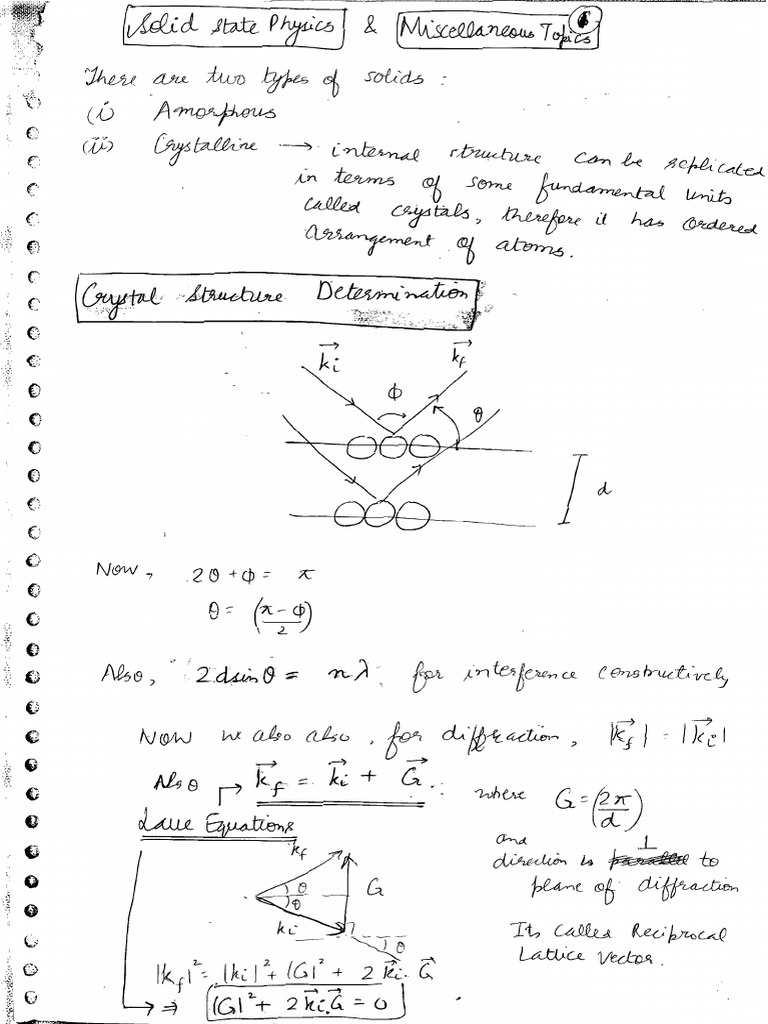 Solid State Physics & Miscellaneous Topics
There are two types of solids :
(i) Amorphous
(ii) Crystalline → internal structure can be replicated
in terms of some fundamental units
called crystals, therefore it has ordered
arrangement of atoms.
Crystal Structure Determination
k⃗i k⃗f
Φ θ
d
Now, 2θ + Φ = π
θ = (π-Φ)/2
Also, 2dsinθ = nλ, for interference constructively
Now we also also, for diffraction, |k⃗f| = |k⃗i|
Also → k⃗f = k⃗i + G⃗ : where G = (2π/d)
Laue Equations
and
direction is ⊥ to
plane of diffraction
kf
θ
θ
G
ki
θ
Its called Reciprocal
Lattice Vector.
|kf|² = |ki|² + |G|² + 2 k⃗i. G⃗
→ ⇒ |G|² + 2k⃗i.G⃗ = 0